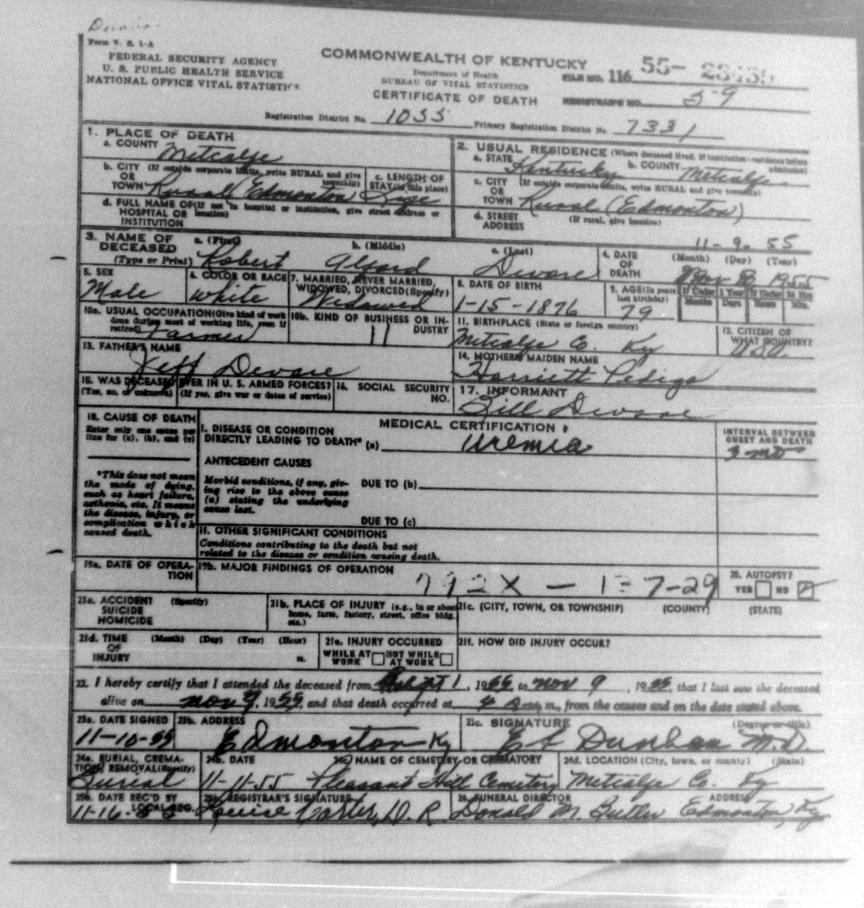 Form V. S. 1-A
FEDERAL SECURITY AGENCY
U. S. PUBLIC HEALTH SERVICE
NATIONAL OFFICE VITAL STATISTICS
COMMONWEALTH OF KENTUCKY
Department of Health
BUREAU OF VITAL STATISTICS
CERTIFICATE OF DEATH
FILE NO. 116 55-
REGISTRAR'S NO. 59
Registration District No. 1055 Primary Registration District No. 7331
1. PLACE OF DEATH
a. COUNTY Metcalfe
b. CITY (If outside corporate limits, write RURAL and give township)
OR TOWN Rural Edmonton
c. LENGTH OF STAY (in this place) Life
d. FULL NAME OF (If not in hospital or institution, give street address or location)
HOSPITAL OR INSTITUTION
2. USUAL RESIDENCE (Where deceased lived. If institution: residence before admission)
a. STATE Kentucky b. COUNTY Metcalfe
c. CITY (If outside corporate limits, write RURAL and give township)
OR TOWN Rural (Edmonton)
d. STREET ADDRESS (If rural, give location)
3. NAME OF DECEASED (Type or Print)
a. (First) Robert b. (Middle) Alford c. (Last) Devore
4. DATE OF DEATH (Month) (Day) (Year)
11-9-55
Nov 8 1955
5. SEX Male
6. COLOR OR RACE White
7. MARRIED, NEVER MARRIED, WIDOWED, DIVORCED (Specify) Widowed
8. DATE OF BIRTH 1-15-1876
9. AGE (In years last birthday) 79
If Under 1 Year Months Days
If Under 24 Hrs. Hours Min.
10a. USUAL OCCUPATION (Give kind of work done during most of working life, even if retired) Farmer
10b. KIND OF BUSINESS OR INDUSTRY 11
11. BIRTHPLACE (State or foreign country) Metcalfe Co. Ky
12. CITIZEN OF WHAT COUNTRY? USA
13. FATHER'S NAME Jeff Devore
14. MOTHER'S MAIDEN NAME Harriett Pedigo
15. WAS DECEASED EVER IN U. S. ARMED FORCES?
(Yes, no, or unknown) (If yes, give war or dates of service)
16. SOCIAL SECURITY NO.
17. INFORMANT Devore
18. CAUSE OF DEATH
Enter only one cause per line for (a), (b), and (c)
*This does not mean the mode of dying, such as heart failure, asthenia, etc. It means the disease, injury, or complication which caused death.
MEDICAL CERTIFICATION
I. DISEASE OR CONDITION DIRECTLY LEADING TO DEATH* (a) Uremia
INTERVAL BETWEEN ONSET AND DEATH
3 mo
ANTECEDENT CAUSES
Morbid conditions, if any, giving rise to the above cause (a) stating the underlying cause last.
DUE TO (b)
DUE TO (c)
II. OTHER SIGNIFICANT CONDITIONS
Conditions contributing to the death but not related to the disease or condition causing death.
19a. DATE OF OPERATION
19b. MAJOR FINDINGS OF OPERATION
792X
20. AUTOPSY?
YES NO
21a. ACCIDENT SUICIDE HOMICIDE (Specify)
21b. PLACE OF INJURY (e.g., in or about home, farm, factory, street, office bldg. etc.)
21c. (CITY, TOWN, OR TOWNSHIP) (COUNTY) (STATE)
21d. TIME OF INJURY (Month) (Day) (Year) (Hour) m.
21e. INJURY OCCURRED
WHILE AT WORK NOT WHILE AT WORK
21f. HOW DID INJURY OCCUR?
22. I hereby certify that I attended the deceased from Sept 1, 1955 to Nov 9, 1955, that I last saw the deceased
alive on Nov 9, 1955, and that death occurred at 4 a m., from the causes and on the date stated above.
23a. DATE SIGNED 11-10-55
23b. ADDRESS Edmonton Ky
23c. SIGNATURE (Degree or title) Dunham M.D.
24a. BURIAL, CREMATION, REMOVAL (Specify) Burial
24b. DATE 11-11-55
24c. NAME OF CEMETERY OR CREMATORY Pleasant Hill Cemetery
24d. LOCATION (City, town, or county) (State) Metcalfe Co. Ky
25a. DATE REC'D BY LOCAL REG. 11-16-55
25b. REGISTRAR'S SIGNATURE Louise Carter, D. R.
26. FUNERAL DIRECTOR ADDRESS
Donald M. Butler Edmonton, Ky